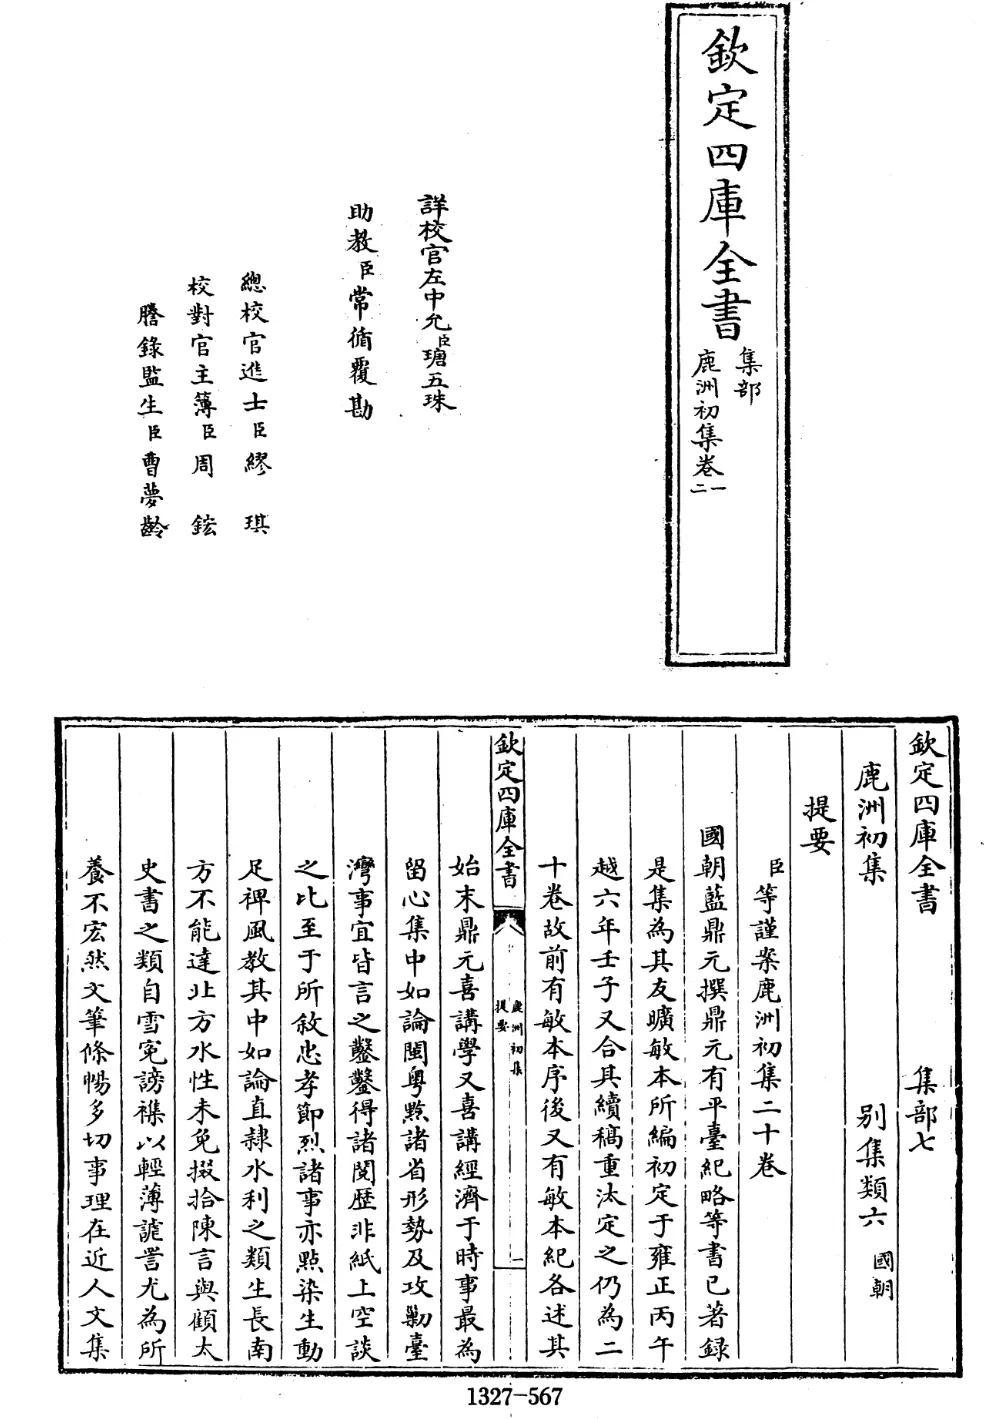 欽定四庫全書
集部
鹿洲初集卷一
二
詳校官左中允臣瑭五珠
助教臣常循覆勘
總校官進士臣繆琪
校對官主簿臣周鋐
謄錄監生臣曹夢齡
欽定四庫全書 集部七
鹿洲初集 别集類六 國朝
提要
臣等謹案鹿洲初集二十卷
國朝藍鼎元撰鼎元有平臺紀略等書已著録
是集為其友曠敏本所編初定于雍正丙午
越六年壬子又合其續稿重汰定之仍為二
十卷故前有敏本序後又有敏本紀各述其
欽定四庫全書
鹿洲初集
提要
一
始末鼎元喜講學又喜講經濟于時事最為
留心集中如論閩粤黔諸省形勢及攻勦臺
灣事宜皆言之鑿鑿得諸閱歴非紙上空談
之比至于所敘忠孝節烈諸事亦㸃染生動
足禆風教其中如論直隸水利之類生長南
方不能達北方水性未免掇拾陳言與顧太
史書之類自雪寃謗襍以輕薄詭詈尤為所
養不宏然文筆條暢多切事理在近人文集
1327-567